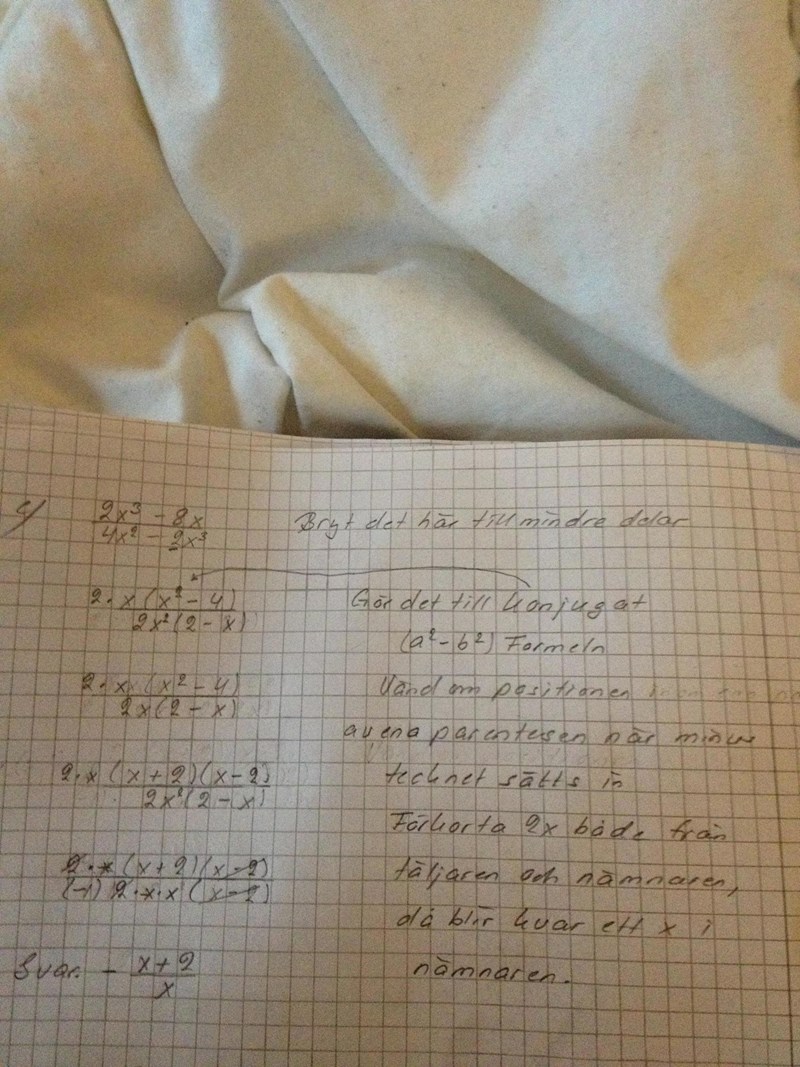 4/ (2x³ - 8x)/(4x² - 2x³) Bryt det här till mindre delar
2·x(x² - 4)/2x²(2 - x) Gör det till konjugat
(a² - b²) Formeln
2·x(x² - 4)/2x(2 - x) Vänd om positionen
av ena parentesen när minus
2·x(x+2)(x-2)/2x²(2 - x) technet sätts in
Förkorta 2x både från
2·x(x+2)(x-2)/(-1)2·x·x(x-2) täljaren och nämnaren,
då blir kvar ett x i
Svar: - (x+2)/x nämnaren.